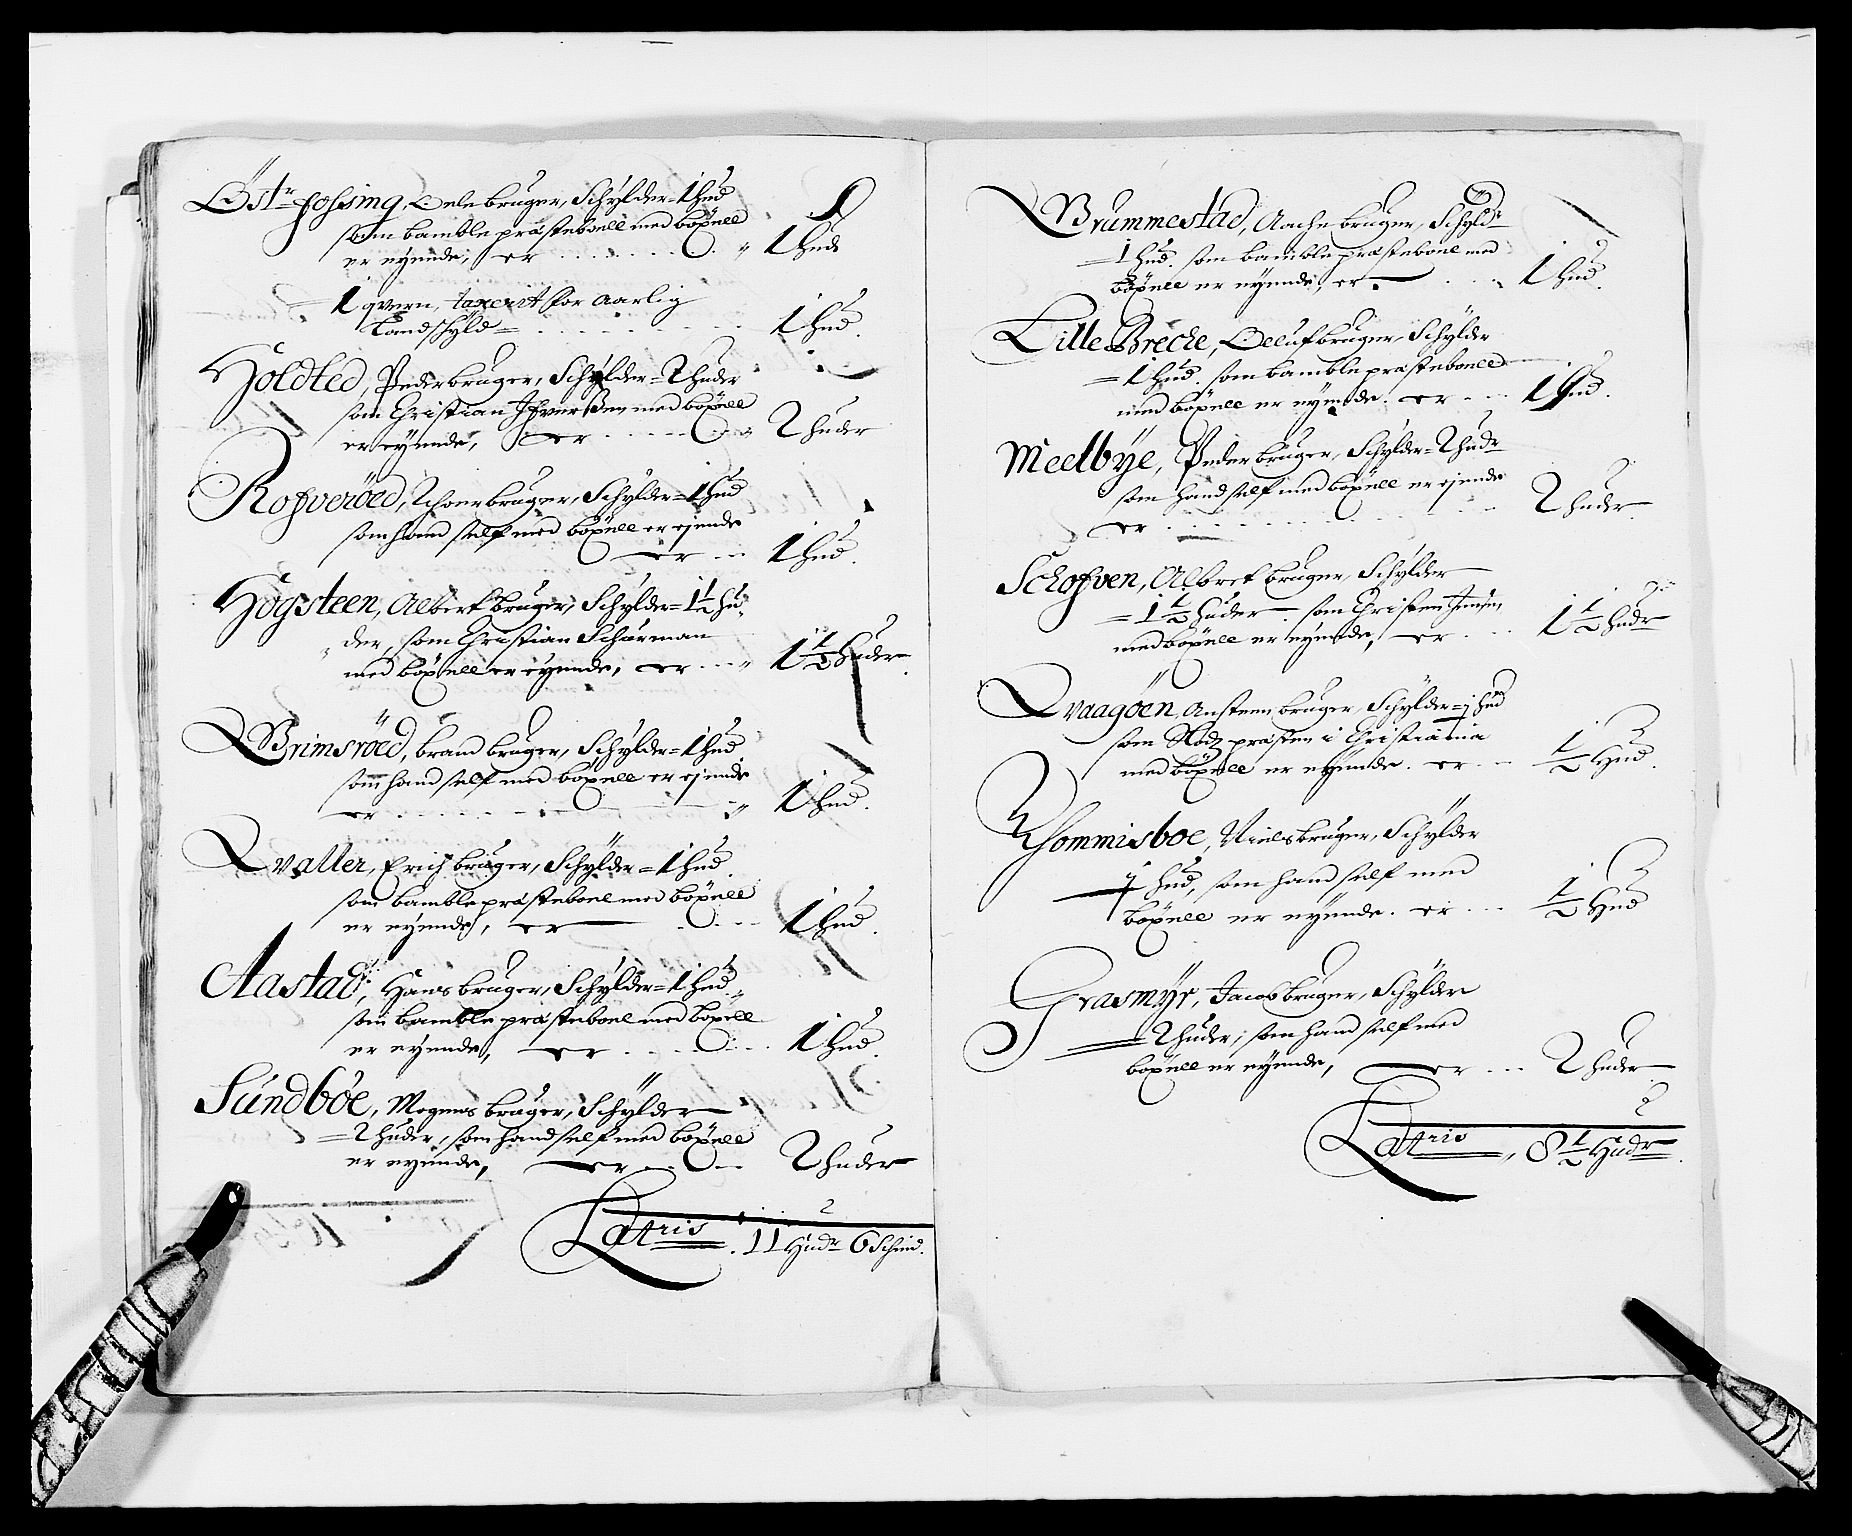 Östr fossing, Oele bruger, Schylder = 1 hud
som bamble præsteboell med böxell
er eyende, er . . . . . . . 1 hud
1 qvern, taxerit for aarlig
Landschyld = . . . . . . 1 hud.
Holdted, Peder bruger, Schylder = 2 huder
som Christian Ifversen med böxell
er eyende, er . . . . . 2 huder
Rofveröed, bruger, Schylder = 1 hud
som hand self med böxell er ejende
er . . 1 hud.
Högsteen, Albert bruger, Schylder = 1½ hu-
der, som Christian Schörman
med böxell er eyende, er . . . 1½ huder.
Brimsröed, brand bruger, Schylder = 1 hud
som hand self med böxell er ejende
er . . . . . . . 1 hud.
Qvaller, Erich bruger, Schylder = 1 hud.
som bamble præsteboel med böxell
er eyende, er . . . . 1 hud.
Aastad, Hans bruger, Schylder = 1 hud
som bamble præsteboel med böxell
er eyende, er . . . . . 1 hud.
Sundböe, Mogens bruger, Schylder
= 2 huder, som hand self med böxell
er eyende, er . . . 2 huder
Latris . 11 hudr 6 Schind.
Brummestad, Aache bruger, Schyldr
= 1 hud. som bamble præsteboel med
böxell er eyende, er . . . . 1 hud.
Lille Breche, Oeluf bruger, Schylder
= 1 hud. som bamble præsteboell
med böxell er eyende. er . . . 1 hud.
Meelbye, Peder bruger, Schylder = 2 hudr
som hand self med böxell er ejende
er . . . . . . . . 2 huder.
Schofven, Albret bruger, Schylder
= 1½ huder. som Christen Jensen
med böxell er eyende, er . . . 1½ hudr
Qvaagöen, Ansteen bruger, Schylder = ½ hud
som Slodz præsten i Christiania
med böxell er eyende. er . . . ½ Hud.
Thommisboe, Niels bruger, Schylder
½ hud, som hand self med
böxell er eyende. er . . . ½ Hud
Grasmyr, Jacob bruger, Schylder
= 2 huder, som hand self med
böxell er eyende, er . . . 2 huder
Latris, 8½ Hudr.